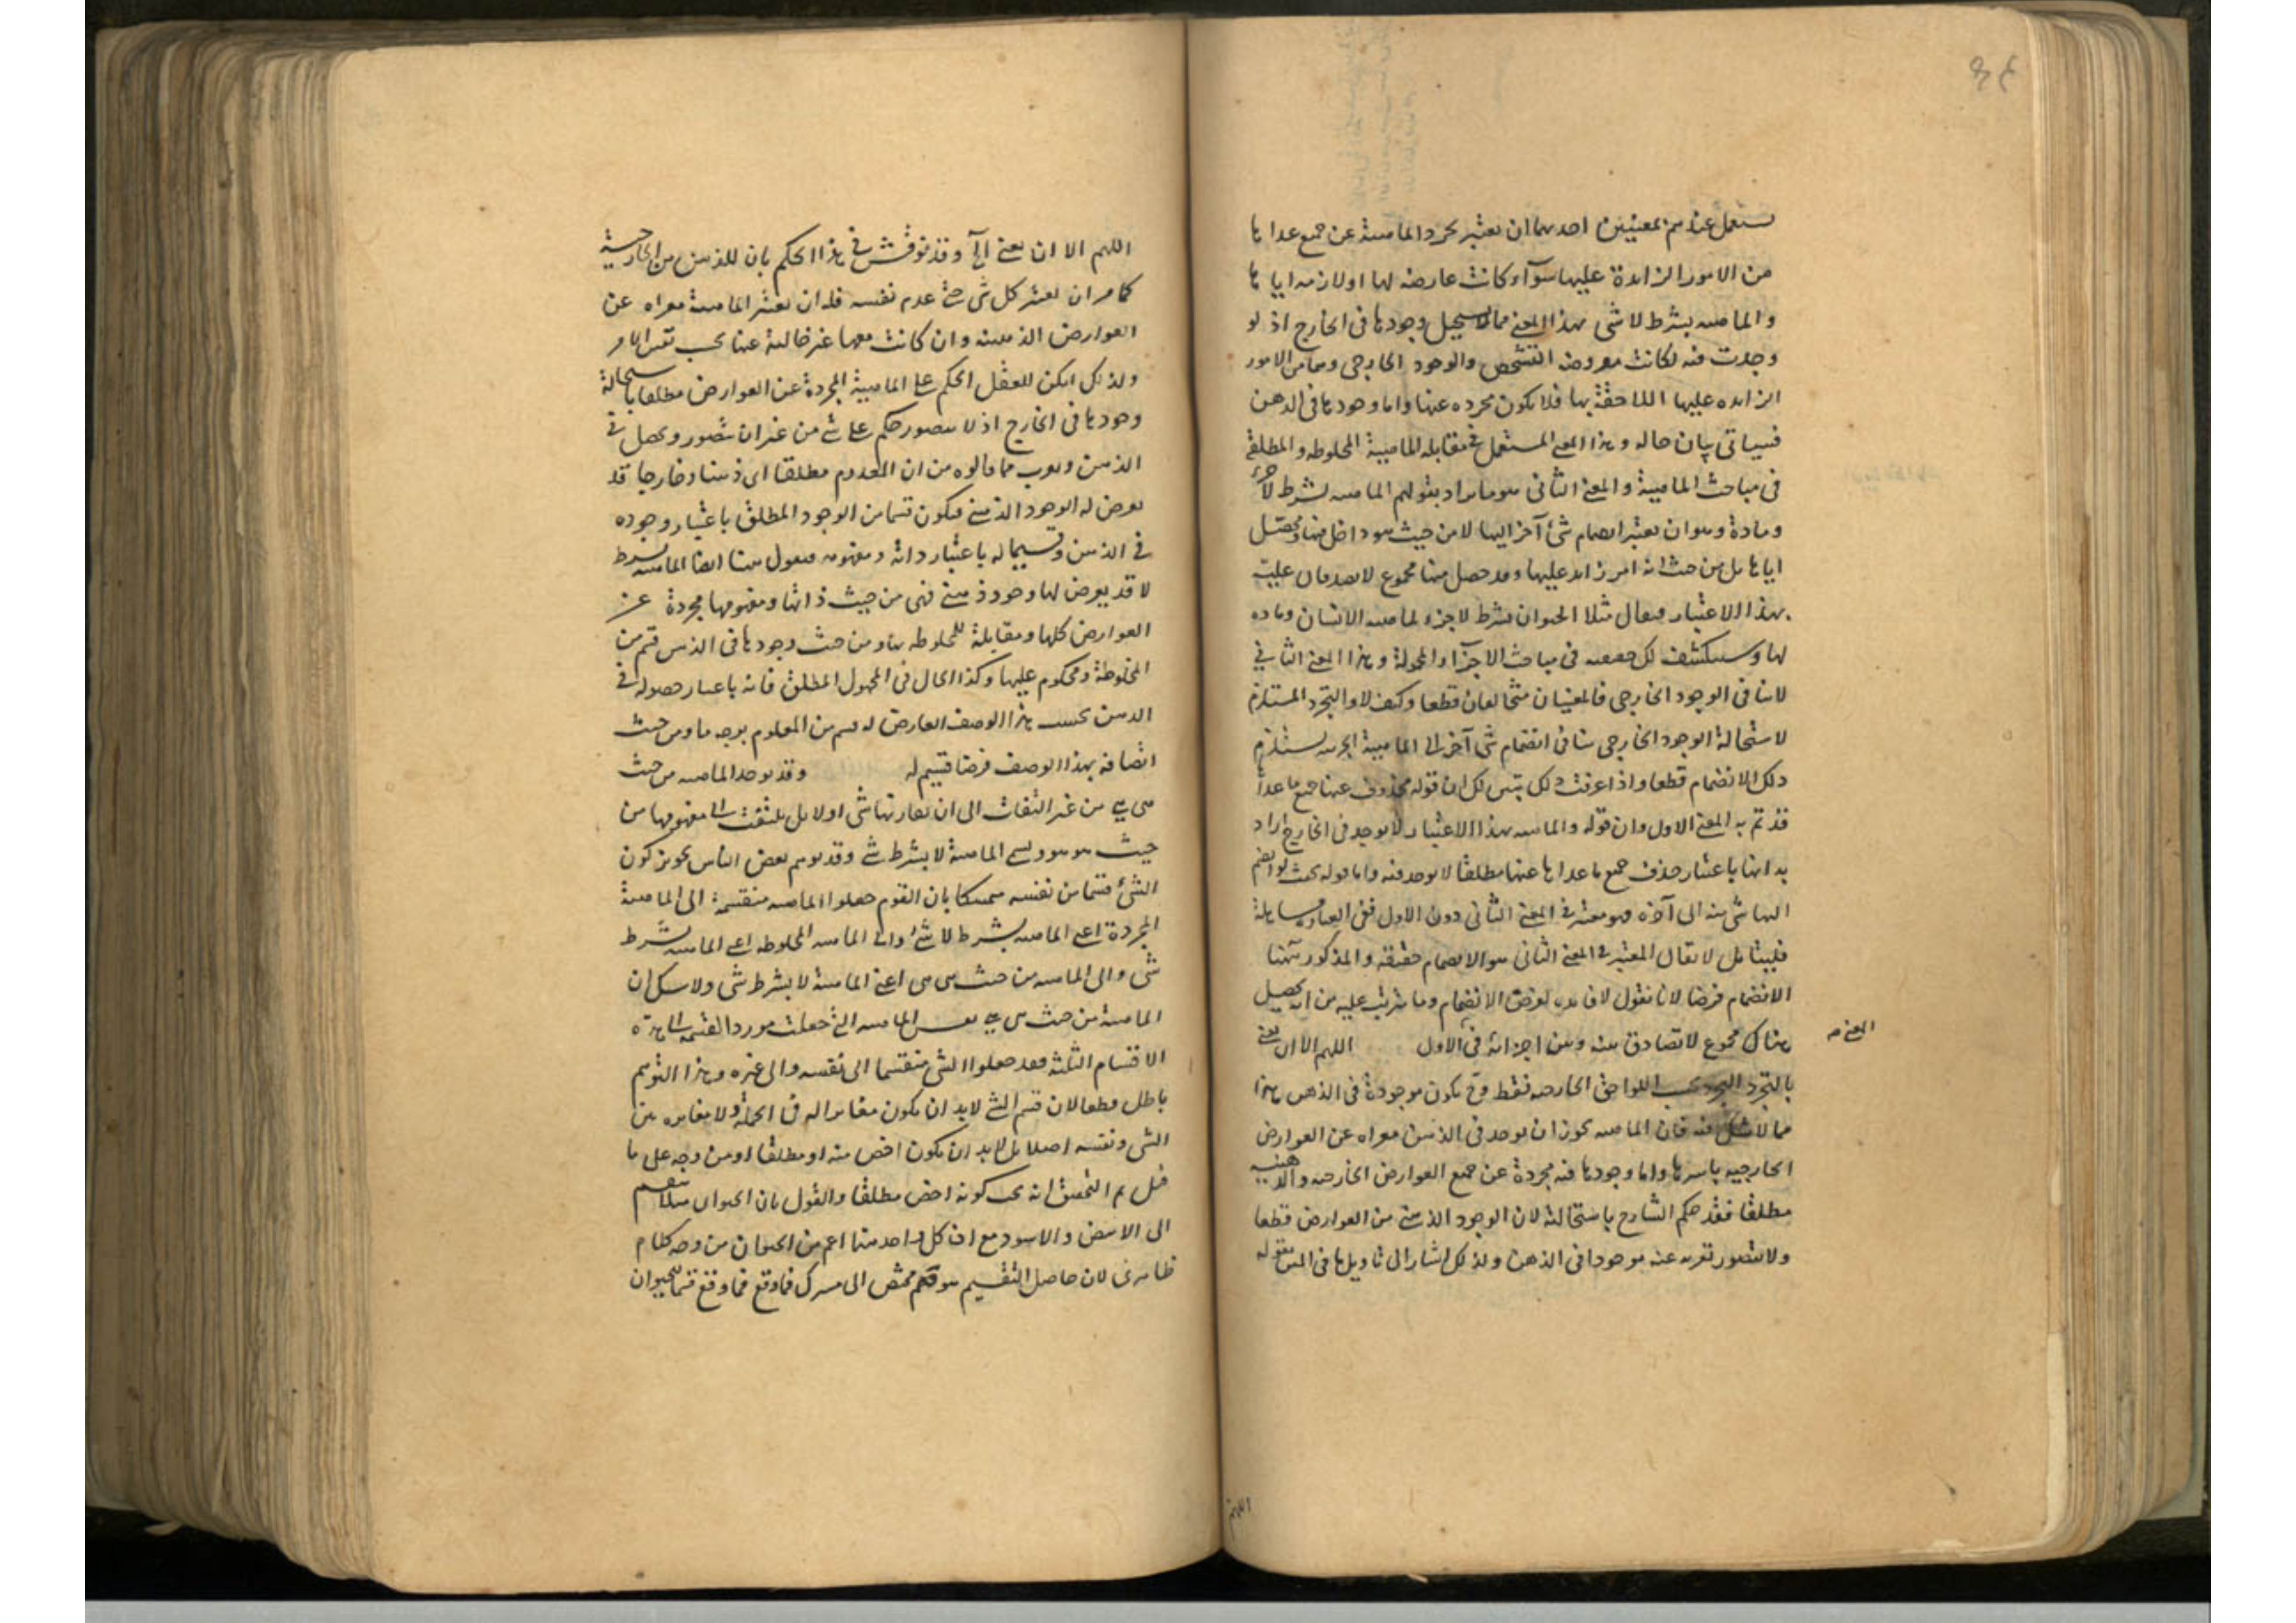 ستعمل عندهم بمعنيين احدهما ان يعتبر تجرد الماهية عن جميع عداها
من الامور الزايدة عليها سوآء كانت عارضة لها او لازمة اياها
والماهيه بشرط لا شى بهذا المعنى مما يستحيل وجودها فى الخارج اذ لو
وجدت فيه لكانت معروضة التشخص والوجود الخارجى وهما من الامور
الزايده عليها اللاحقة بها فلا يكون مجرده عنها واما وجودها فى الذهن
فسياتى بيان حاله وهذا المعنى المستعمل فى مقابله الماهيية المخلوطه والمطلقة
فى مباحث الماهيية والمعنى الثانى هو ما يراد بقولهم الماهيه بشرط لا جزء
ومادة وهو ان يعتبر انضمام شئ آخر اليها لا من حيث هو داخل فيها ومحصل
اياها بل من حيث انه امر زايد عليها وقد حصل منها مجموع لا يصدقان عليه
بهذا الاعتبار فيقال مثلا الحيوان بشرط لا جزء لماهيه الانسان وماده
لها وسينكشف لك حقيقته فى مباحث الاجزآء المحمولة وهذا المعنى الثانى
لا ينافى الوجود الخارجى فالمعنيان متخالفان قطعا وكيف لا والتجرد المستلزم
لاستحالة الوجود الخارجى ينافى انضمام شى آخر الى الماهيية الجزئيه يستلزم
ذلك الانضمام قطعا واذا عرفت ذلك تبين لك ان قوله محذوف عنها جميع ما عداها
قد تم به المعنى الاول وان قوله والماهيه بهذا الاعتبار لا يوجد فى الخارج اراد
به انها باعتبار حذف جميع ما عداها عنها مطلقا لا يوجد فيه واما قوله بحيث لو انضم
اليها شى منه الى آخره فهو معتبر فى المعنى الثانى دون الاول ففى العباره مساهلة
فليتامل لا يقال المعتبر فى المعنى الثانى هو الانضمام حقيقه والمذكور هنا
الانضمام فرضا لانا نقول لا فايده لفرض الانضمام وما يترتب عليه من انه يحصل
هناك مجموع لا تصادق بينه وبين اجزائه فى الاول اللهم الا ان يعنى
المعنى صح
بالتجرد التجرد بحسب اللواحق الخارجيه فقط وح يكون موجودة فى الذهن هذا
مما لا شك فيه فان الماهيه يجوز ان يوجد فى الذهن معراه عن العوارض
الخارجيه باسرها واما وجودها فيه مجردة عن جميع العوارض الخارجيه والذهنيه
مطلقا فقد حكم الشارح باستحالته لان الوجود الذهنى من العوارض قطعا
ولا يتصور تعريه عنه موجودا فى الذهن ولذلك اشار الى تاويل ما فى المتن بقوله
اللهم
اللهم الا ان يعنى الى وقد نوقش فى هذا الحكم بان للذهن من الخارجية
كما مر ان يعتبر كل شى حتى عدم نفسه فله ان يعتبر الماهية معراه عن
العوارض الذهنيه وان كانت معها غير خالية عنها بحسب نفس الامر
ولذلك امكن للعقل الحكم على الماهيية المجردة عن العوارض مطلقا باستحالة
وجودها فى الخارج اذ لا يتصور حكم على شى من غير ان يتصور ويحصل فى
الذهن ويقرب مما قالوه من ان المعدوم مطلقا اى ذهنا وخارجا قد
يعرض له الوجود الذهنى فيكون قسما من الوجود المطلق باعتبار وجوده
فى الذهن وقسيما له باعتبار ذاته ومفهومه فنقول هنا ايضا الماهيه بشرط
لا قد يعرض لها وجود ذهنى فهى من حيث ذاتها ومفهومها مجردة عن
العوارض كلها ومقابلة للمخلوطه ومن حيث وجودها فى الذهن قسم من
المخلوطة ومحكوم عليها وكذا الحال فى المجهول المطلق فانه باعتبار حصوله فى
الذهن بحسب هذا الوصف العارض له قسم من المعلوم بوجه ما ومن حيث
اتصافه بهذا الوصف فرضا قسيم له وقد يوخذ الماهيه من حيث
هى هى من غير التفات الى ان يقارنها شى او لا بل يلتفت الى مفهومها من
حيث هو هو ويسمى الماهية لا بشرط شى وقد يوهم بعض الناس تجويز كون
الشئ قسما من نفسه متمسكا بان القوم جعلوا الماهيه منقسمة الى الماهية
المجردة اعنى الماهيه بشرط لا شئ والى الماهيه المخلوطه اعنى الماهيه بشرط
شى والى الماهيه من حيث هى هى اعنى الماهية لا بشرط شى ولا شك ان
الماهية من حيث هى هى نفس الماهيه التى جعلت مورد القسمه الى هذه
الاقسام الثلثه فقد جعلوا الشى منقسما الى نفسه والى غيره وهذا التوهم
باطل قطعا لان قسم الشى لا بد ان يكون مغايرا له فى الجملة ولا مغايره بين
الشى ونفسه اصلا بل لا بد ان يكون اخص منه او مطلقا او من وجه على ما
قيل ثم التحقيق انه يجب كونه اخص مطلقا والقول بان الحيوان مثلا ينقسم
الى الابيض والاسود مع ان كل واحد منهما اعم من الحيوان من وجه كلام
ظاهرى لان حاصل التقسيم هو ضم مختص الى مشترك فما وقع فما وقع قسما للحيوان